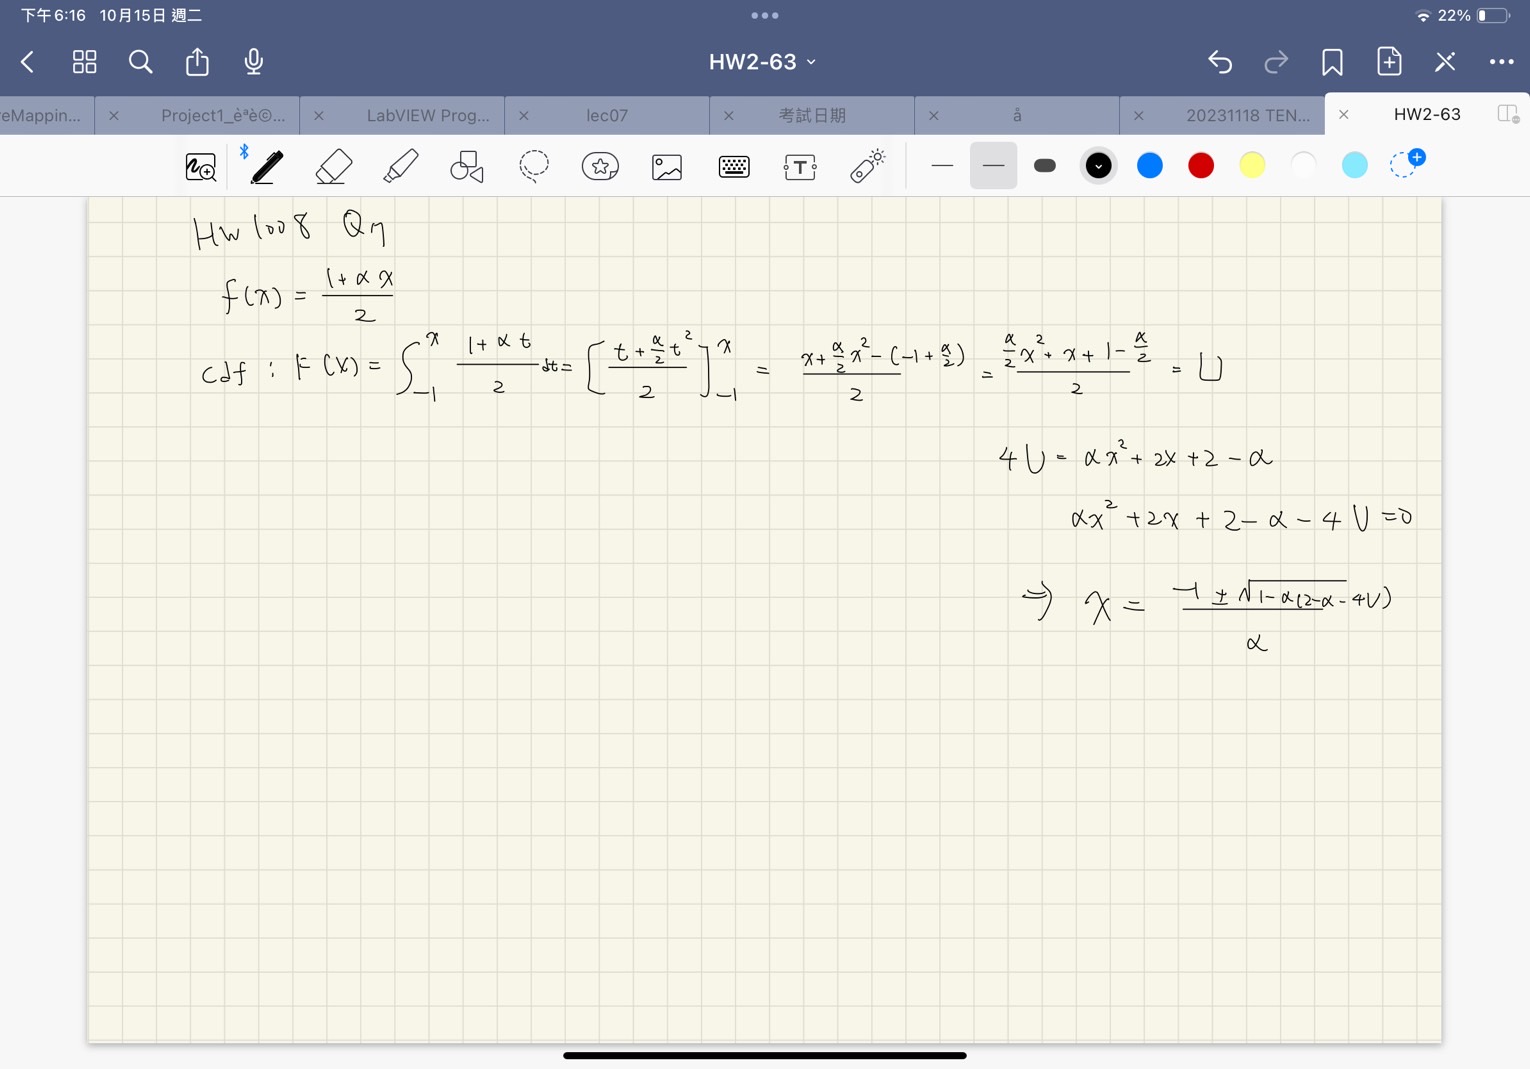 下午6:16 10月15日 週二 22%
HW2-63
reMappin... Project1_èªè©... LabVIEW Prog... lec07 考試日期 å 20231118 TEN... HW2-63
HW 1008 Q7
f(x) = (1+αx)/2
cdf : F(X) = ∫_{-1}^{x} (1+αt)/2 dt = [(t + α/2 t²)/2]_{-1}^{x} = (x + α/2 x² - (-1 + α/2))/2 = (α/2 x² + x + 1 - α/2)/2 = U
4U = αx² + 2x + 2 - α
αx² + 2x + 2 - α - 4U = 0
⇒ x = (-1 ± √(1-α(2-α-4U)))/α